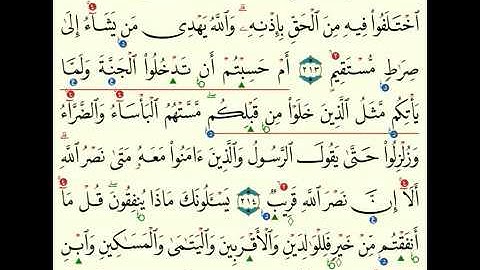 ٱخْتَلَفُوا۟ فِيهِ مِنَ ٱلْحَقِّ بِإِذْنِهِۦ ۗ وَٱللَّهُ يَهْدِى مَن يَشَآءُ إِلَىٰ
صِرَٰطٍ مُّسْتَقِيمٍ ٢١٣ أَمْ حَسِبْتُمْ أَن تَدْخُلُوا۟ ٱلْجَنَّةَ وَلَمَّا
يَأْتِكُم مَّثَلُ ٱلَّذِينَ خَلَوْا۟ مِن قَبْلِكُم ۖ مَّسَّتْهُمُ ٱلْبَأْسَآءُ وَٱلضَّرَّآءُ
وَزُلْزِلُوا۟ حَتَّىٰ يَقُولَ ٱلرَّسُولُ وَٱلَّذِينَ ءَامَنُوا۟ مَعَهُۥ مَتَىٰ نَصْرُ ٱللَّهِ ۗ
أَلَآ إِنَّ نَصْرَ ٱللَّهِ قَرِيبٌ ٢١٤ يَسْـَٔلُونَكَ مَاذَا يُنفِقُونَ ۖ قُلْ مَآ
أَنفَقْتُم مِّنْ خَيْرٍ فَلِلْوَٰلِدَيْنِ وَٱلْأَقْرَبِينَ وَٱلْيَتَٰمَىٰ وَٱلْمَسَٰكِينِ وَٱبْنِ